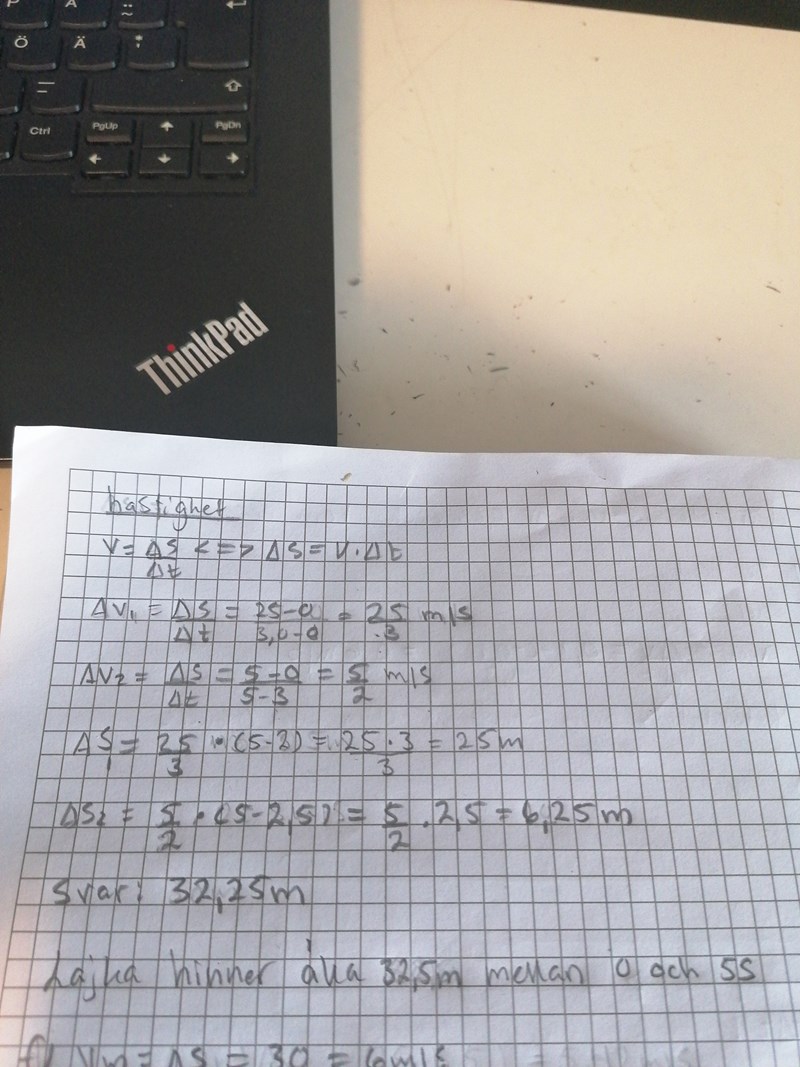 P Å
Ö Ä
Ctrl PgUp PgDn
ThinkPad
hastighet
V = ΔS/Δt <=> ΔS = V · Δt
ΔV₁ = ΔS/Δt = 25-0/3,0-0 = 25/.3 m/s
ΔV₂ = ΔS/Δt = 5-0/5-3 = 5/2 m/s
ΔS₁ = 25/3 · (5-2) = 25·3/3 = 25m
ΔS₂ = 5/2 · (5-2,5) = 5/2 · 2,5 = 6,25m
Svar: 32,25m
Lajka hinner åka 32,5m mellan 0 och 5S
f) Vm = ΔS = 30 = 6m/s